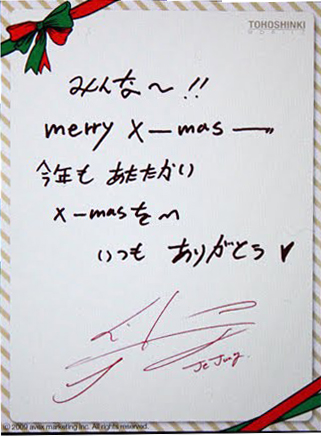 TOHOSHINKI
MOBILE
みんな〜!!
merry X-mas ー
今年も あたたかい
X-masを〜
いつも ありがとう ♥
JeJung.
© 2009 avex marketing Inc. All rights reserved.